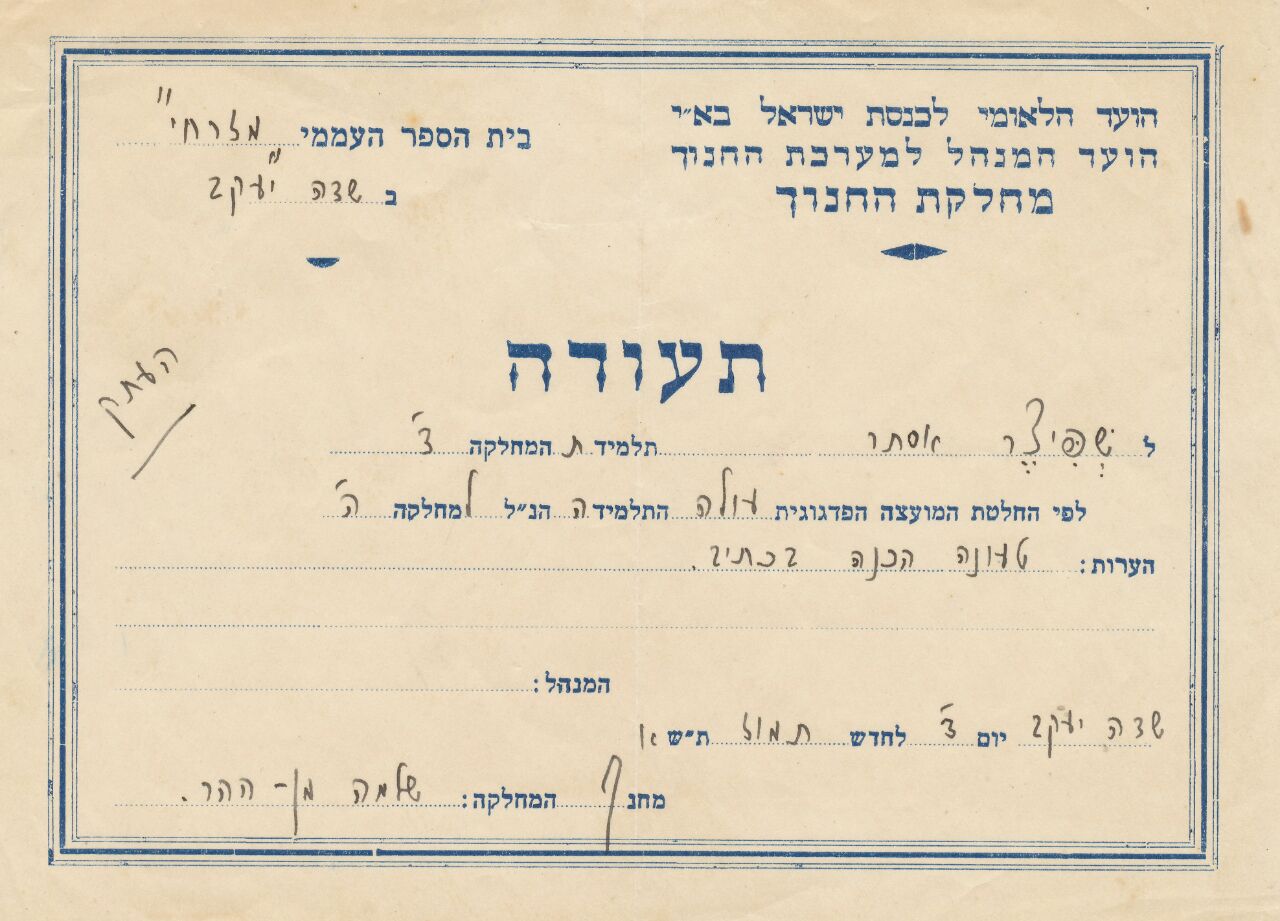 הועד הלאומי לכנסת ישראל בא״י
הועד המנהל למערכת החנוך
מחלקת החנוך
בית הספר העממי "מזרחי"
ב שדה יעקב
תעודה
העתק
ל שְׁפִּיצֶר אסתר תלמידת המחלקה ד׳
לפי החלטת המועצה הפדגוגית עולה התלמידה הנ״ל למחלקה ה׳
הערות: טעונה הכנה בכתיב.
המנהל:
שדה יעקב יום ד׳ לחדש תמוז ת״ש א
מחנך המחלקה: שלמה מן-ההר.